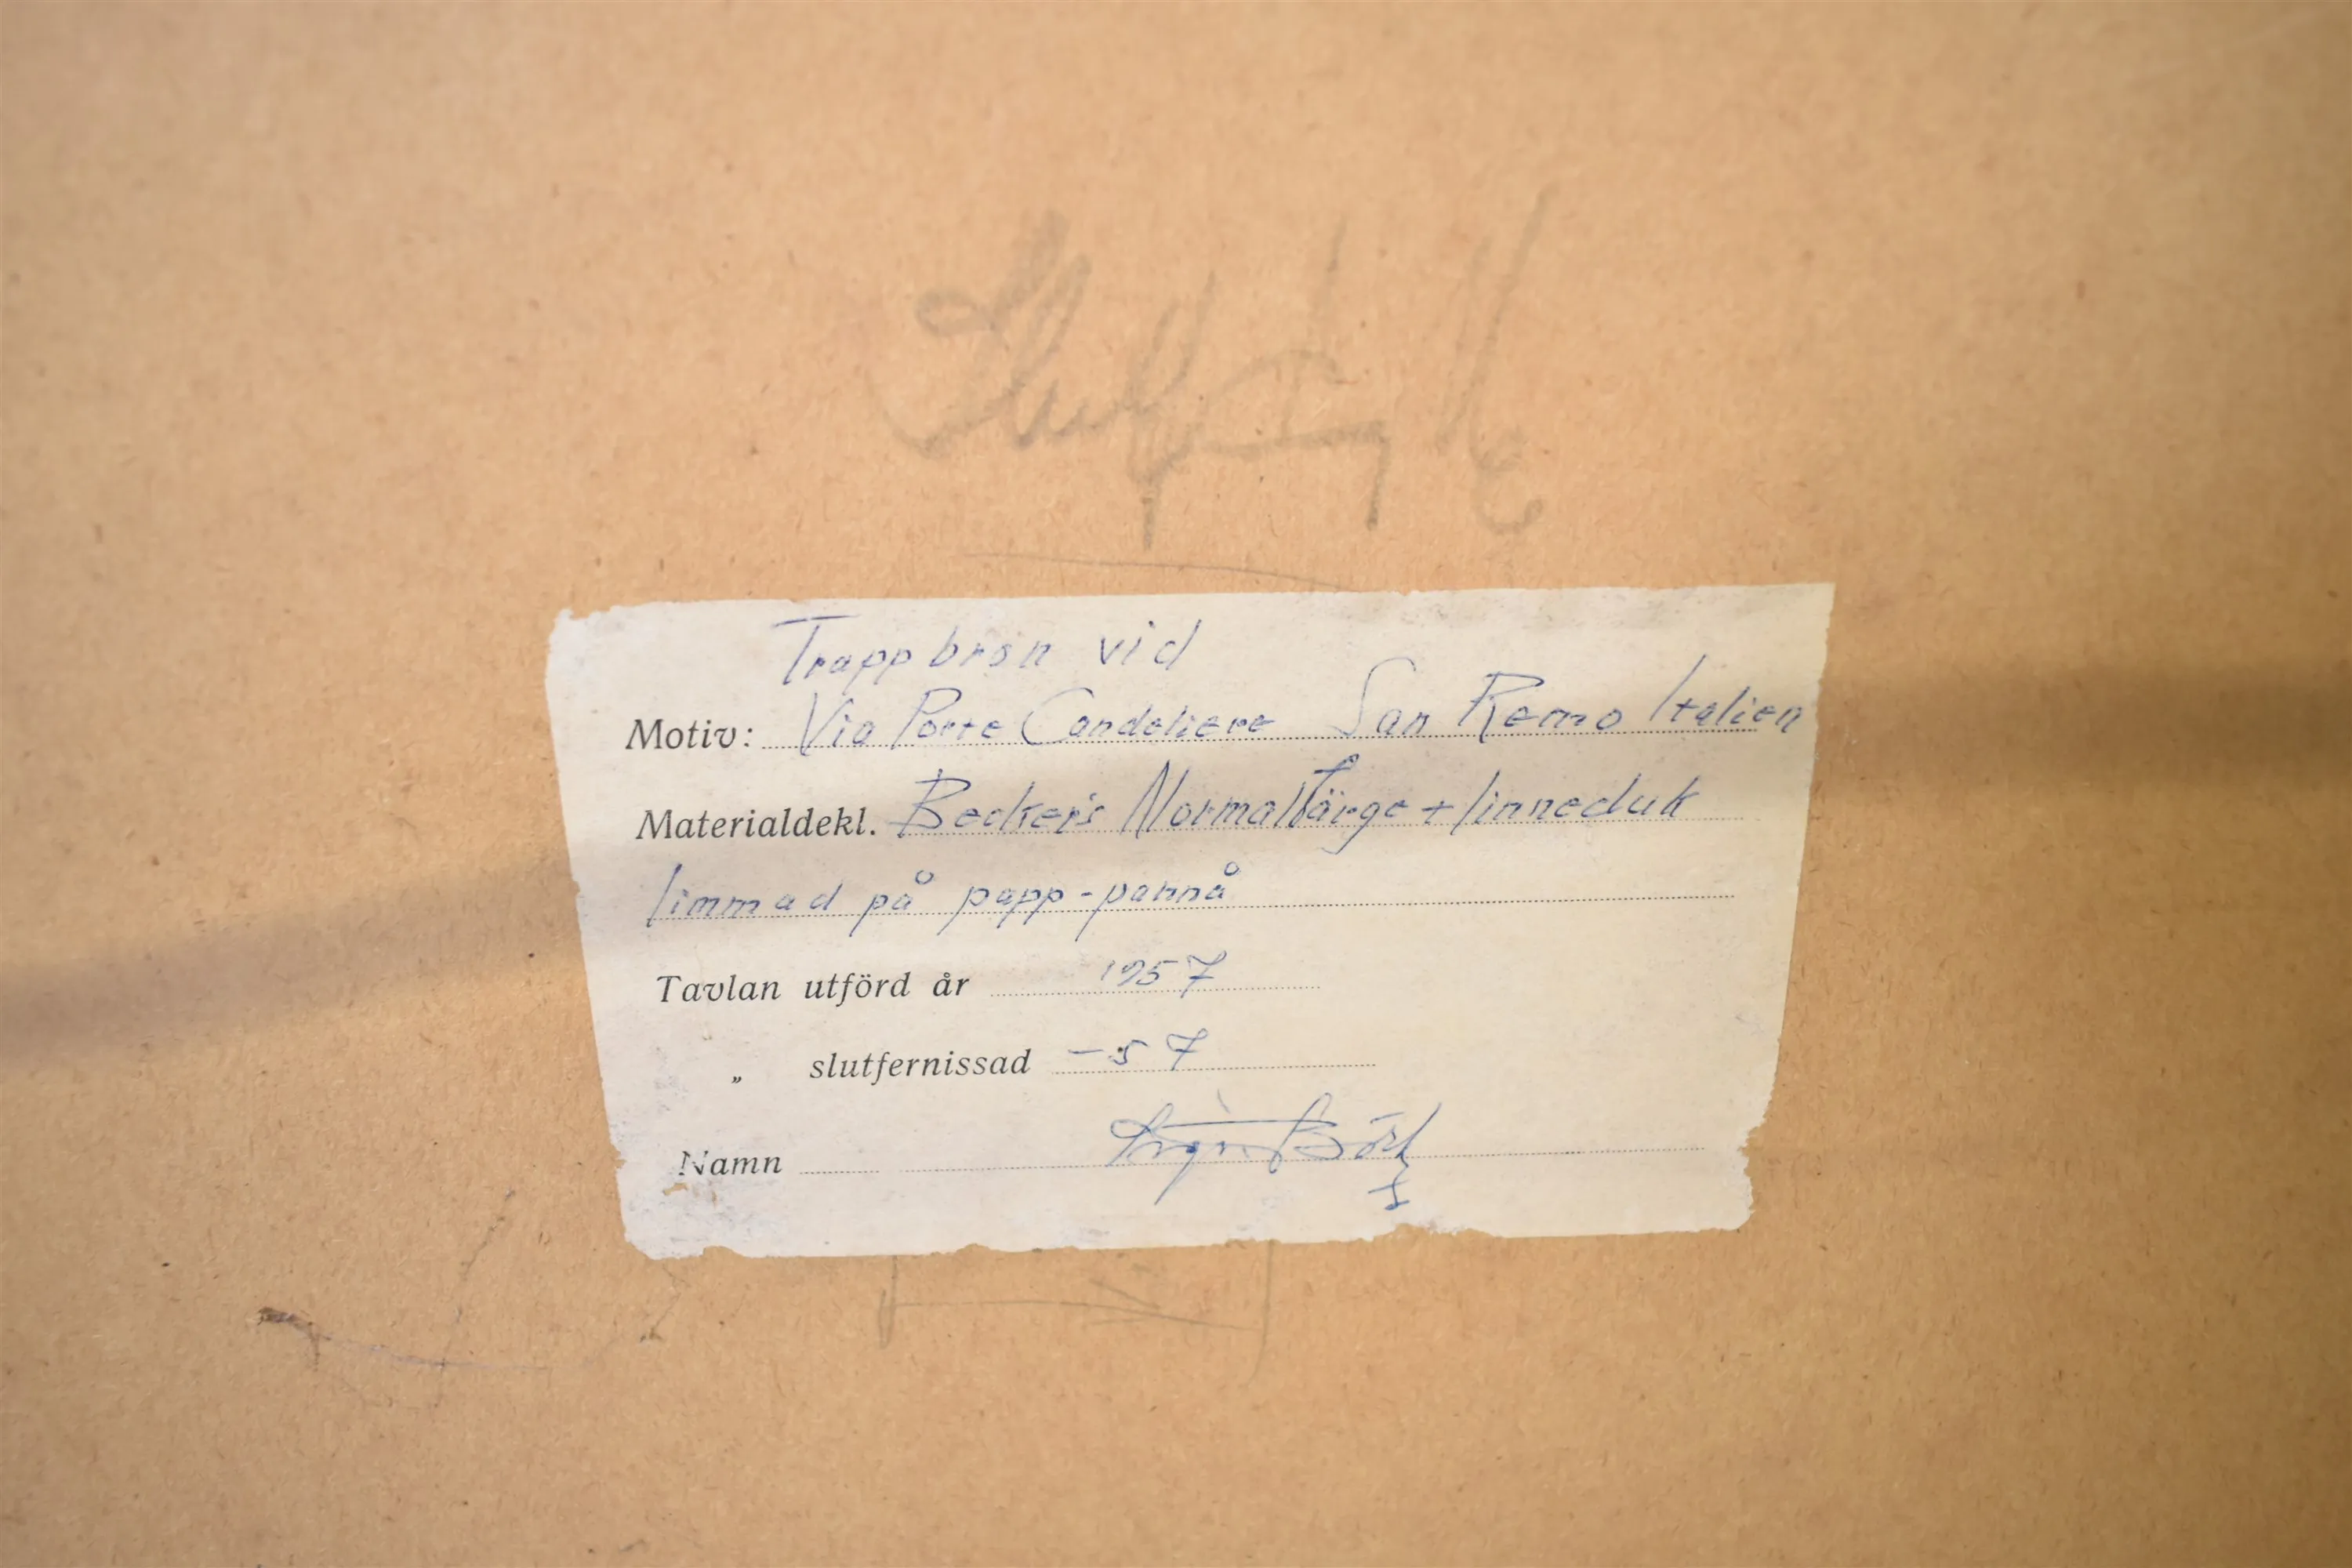 Trappbron vid
Motiv: Via Porte Candeliere San Remo Italien
Materialdekl. Becker's Normalfärge + linneduk
limmad på papp-pannå
Tavlan utförd år 1957
„ slutfernissad -57
Namn